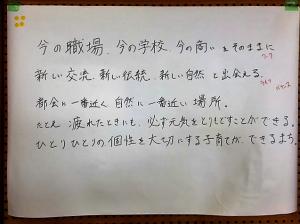 今の職場、今の学校、今の商いをそのままに
新しい交流、新しい伝統、新しい自然と出会える。
都会に一番近く自然に一番近い場所。
たとえ疲れたときにも、必ず元気をとりもどすことができる。
ひとりひとりの個性を大切にする子育てが、できるまち。